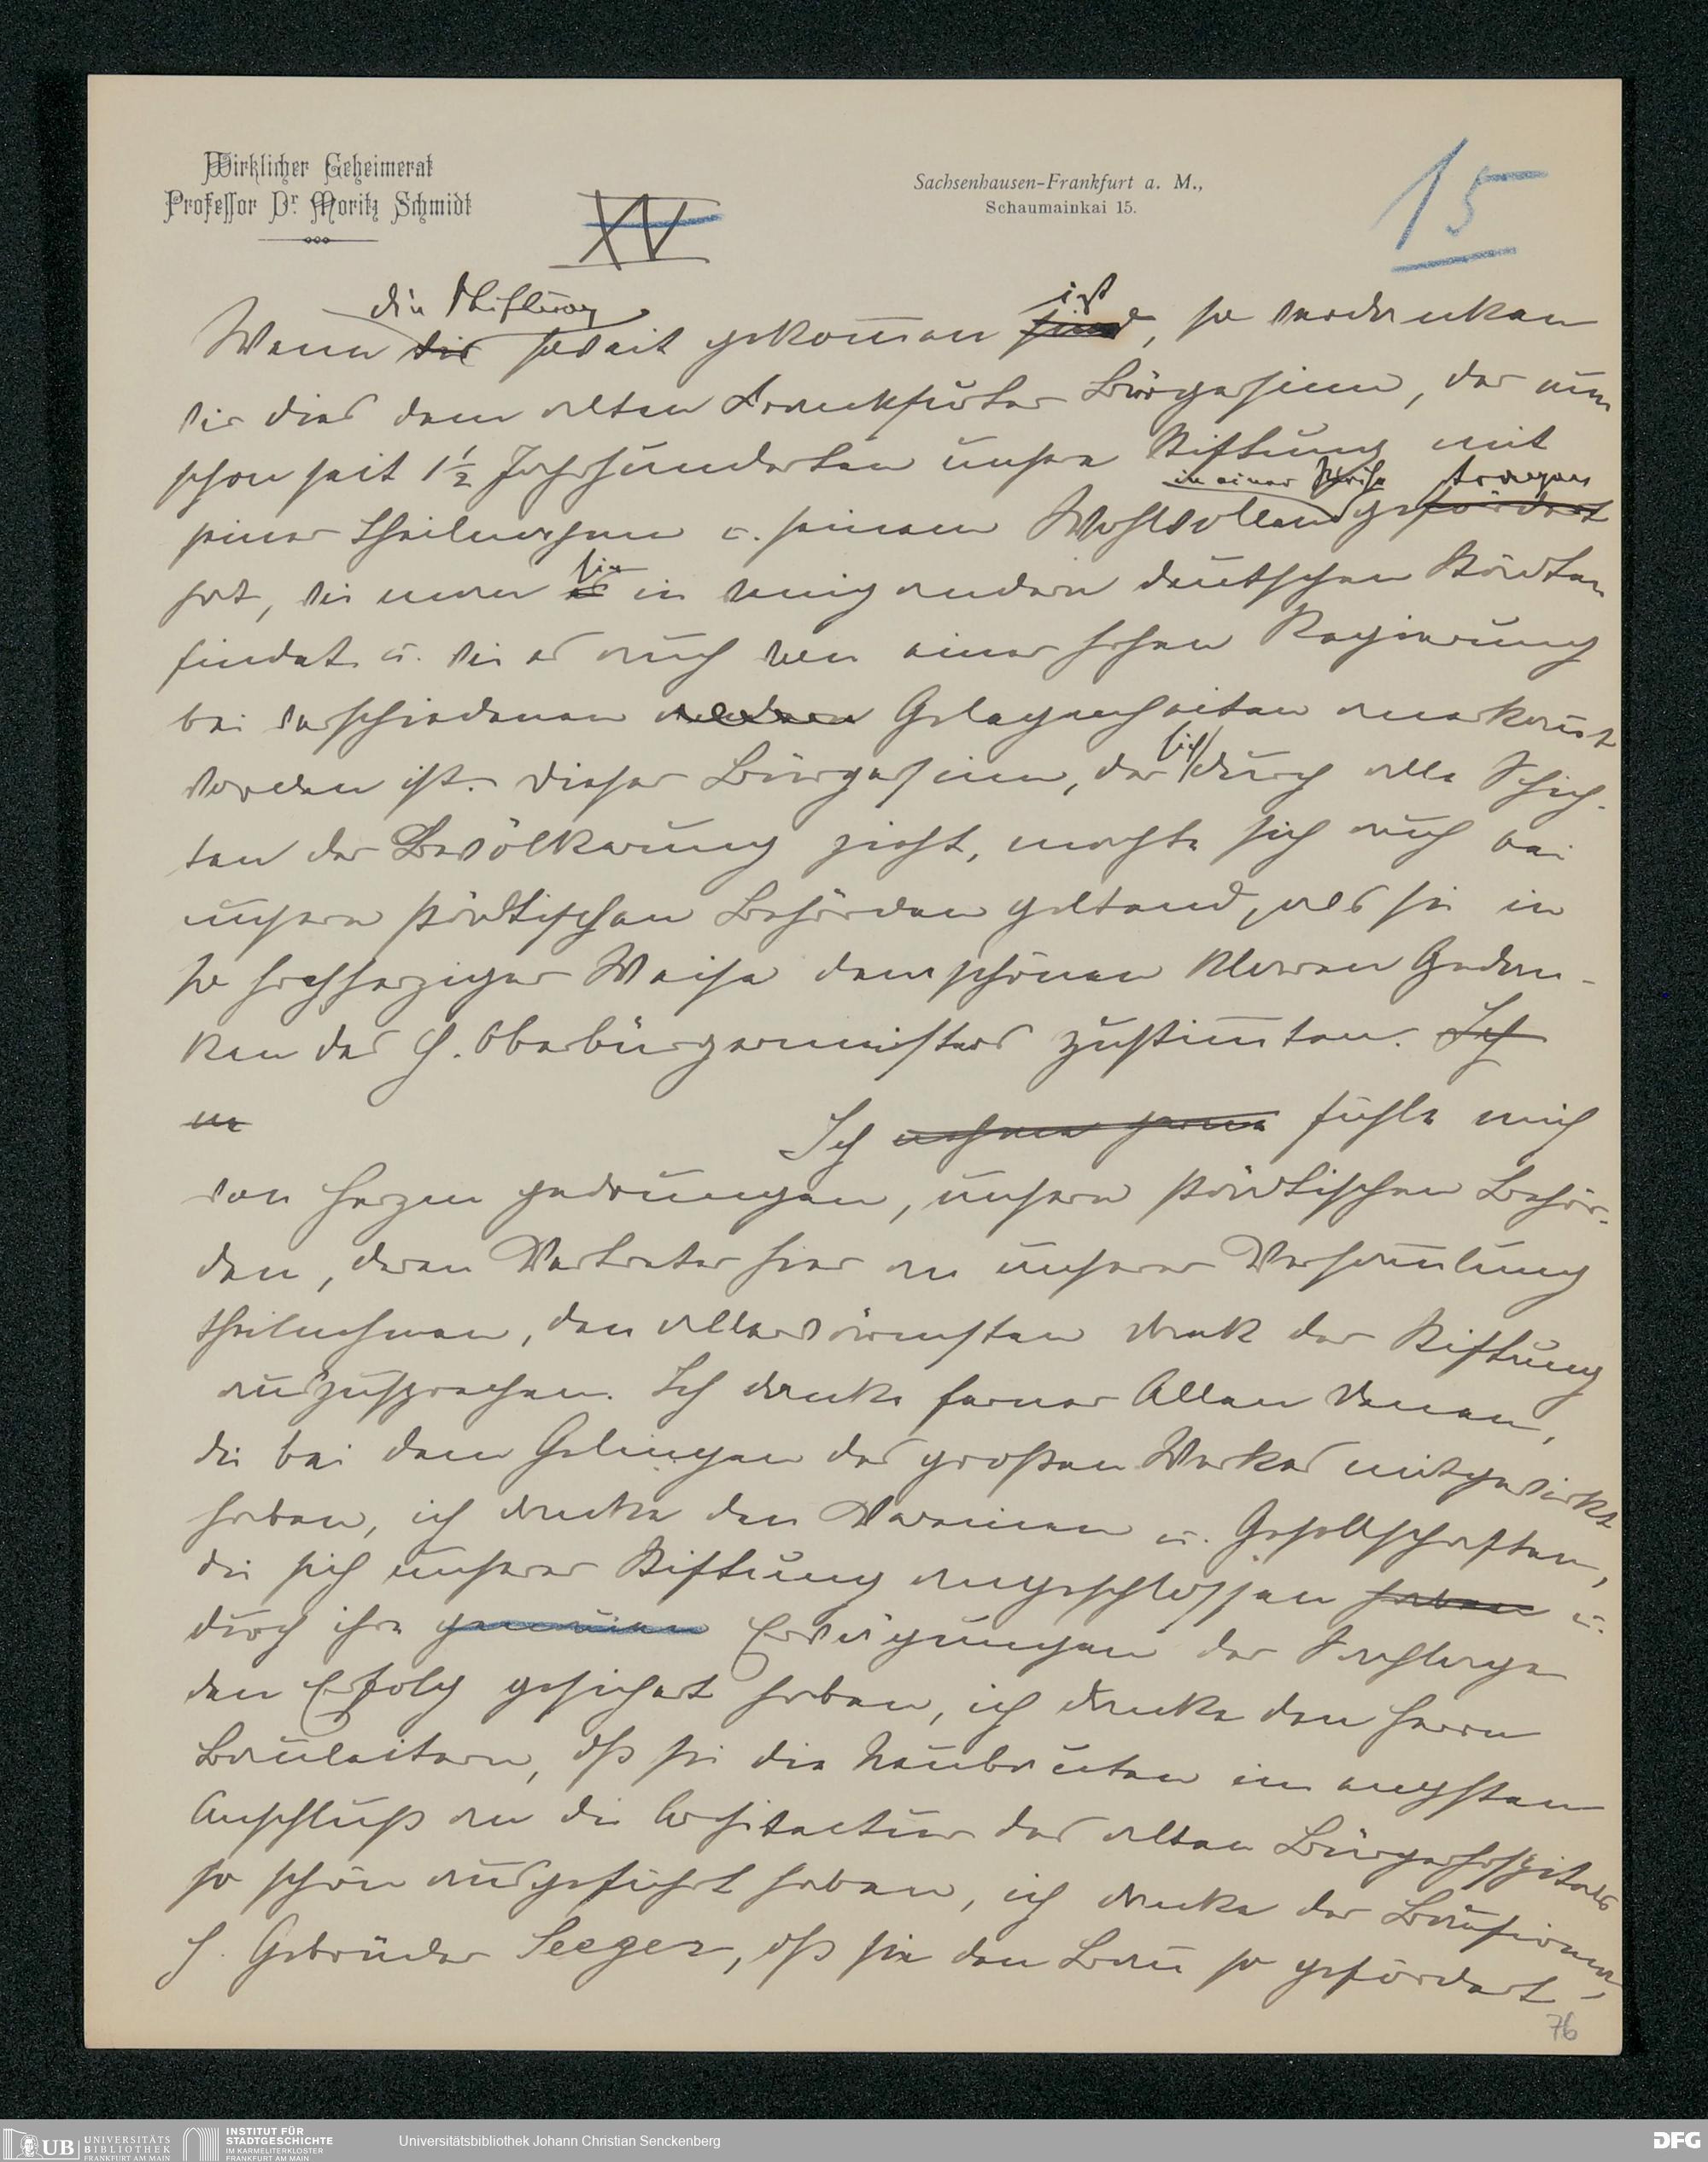 Wirklicher Geheimerat
Professor Dr. Moritz Schmidt
Sachsenhausen-Frankfurt a. M.,
Schaumainkai 15.
XV
15
die Stiftung ist
Wenn wir soweit gekommen sind, so verdanken
wir dies dem alten Frankfurter Bürgersinn, der nun
schon seit 1½ Jahrhunderten unsere Stiftung mit
in einer Weise tragen
seiner Theilnahme u. seinem Wohlwollen gefördert
sie
hat, wie man es in wenig andern deutschen Städten
findet u. wie es auch von einer hohen Regierung
bei verschiedenen Gelegenheiten anerkannt
sich
worden ist. Dieser Bürgersinn, der durch alle Schich-
ten der Bevölkerung zieht, machte sich auch bei
unsern städtischen Behörden geltend, als sie in
so hochherziger Weise dem schönen klaren Gedan-
ken des H. Oberbürgermeisters zustimmten. Ich
Ich nehme gerne fühle mich
von Herzen gedrungen, unsern städtischen Behör-
den, deren Vertreter hier an unserer Versammlung
theilnehmen, den allerwärmsten Dank der Stiftung
auszusprechen. Ich danke ferner Allen Denen,
die bei dem Gelingen des großen Werkes mitgewirkt
haben, ich danke den Vereinen u. Gesellschaften,
die sich unserer Stiftung angeschlossen haben u.
durch ihre genauen Erwägungen der Sachlage
den Erfolg gesichert haben, ich danke den Herrn
Bauleitern, dß sie die Neubauten im engsten
Anschluß an die Architectur des alten Bürgerhospitals
so schön ausgeführt haben, ich danke der Baufirma,
H. Gebrüder Seeger, dß sie den Bau so gefördert
76
UB UNIVERSITÄTS
BIBLIOTHEK
FRANKFURT AM MAIN
INSTITUT FÜR
STADTGESCHICHTE
IM KARMELITERKLOSTER
FRANKFURT AM MAIN
Universitätsbibliothek Johann Christian Senckenberg
DFG